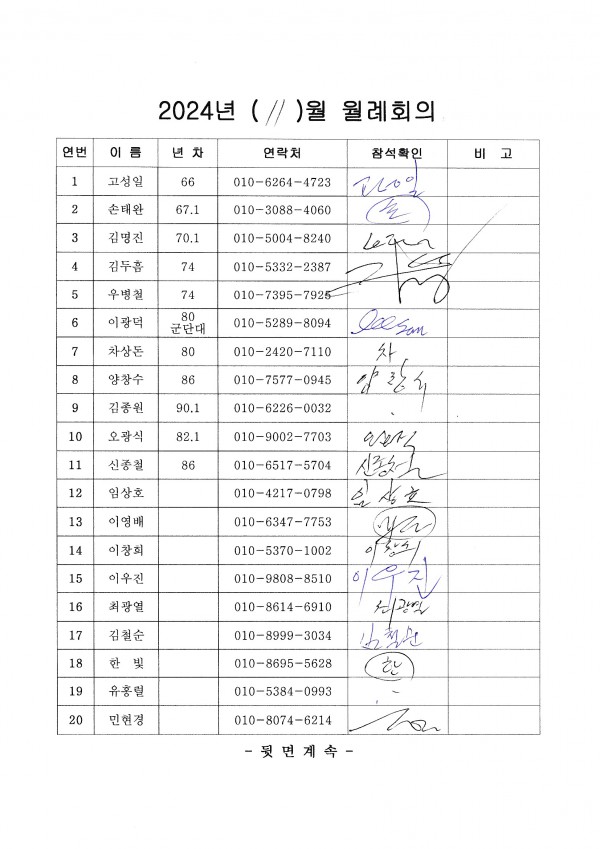 2024년 ( 11 )월 월례회의
연번 이 름 년 차 연락처 참석확인 비 고
1 고성일 66 010-6264-4723 고성일
2 손태완 67.1 010-3088-4060 손
3 김명진 70.1 010-5004-8240
4 김두흠 74 010-5332-2387
5 우병철 74 010-7395-7925
6 이광덕 80 군단대 010-5289-8094
7 차상돈 80 010-2420-7110 차
8 양창수 86 010-7577-0945 양창수
9 김종원 90.1 010-6226-0032
10 오광식 82.1 010-9002-7703
11 신종철 86 010-6517-5704 신종철
12 임상호 010-4217-0798 임상호
13 이영배 010-6347-7753
14 이창희 010-5370-1002 이창희
15 이우진 010-9808-8510 이우진
16 최광열 010-8614-6910 최광열
17 김철순 010-8999-3034 김철순
18 한 빛 010-8695-5628 한
19 유흥렬 010-5384-0993
20 민현경 010-8074-6214
- 뒷면계속 -